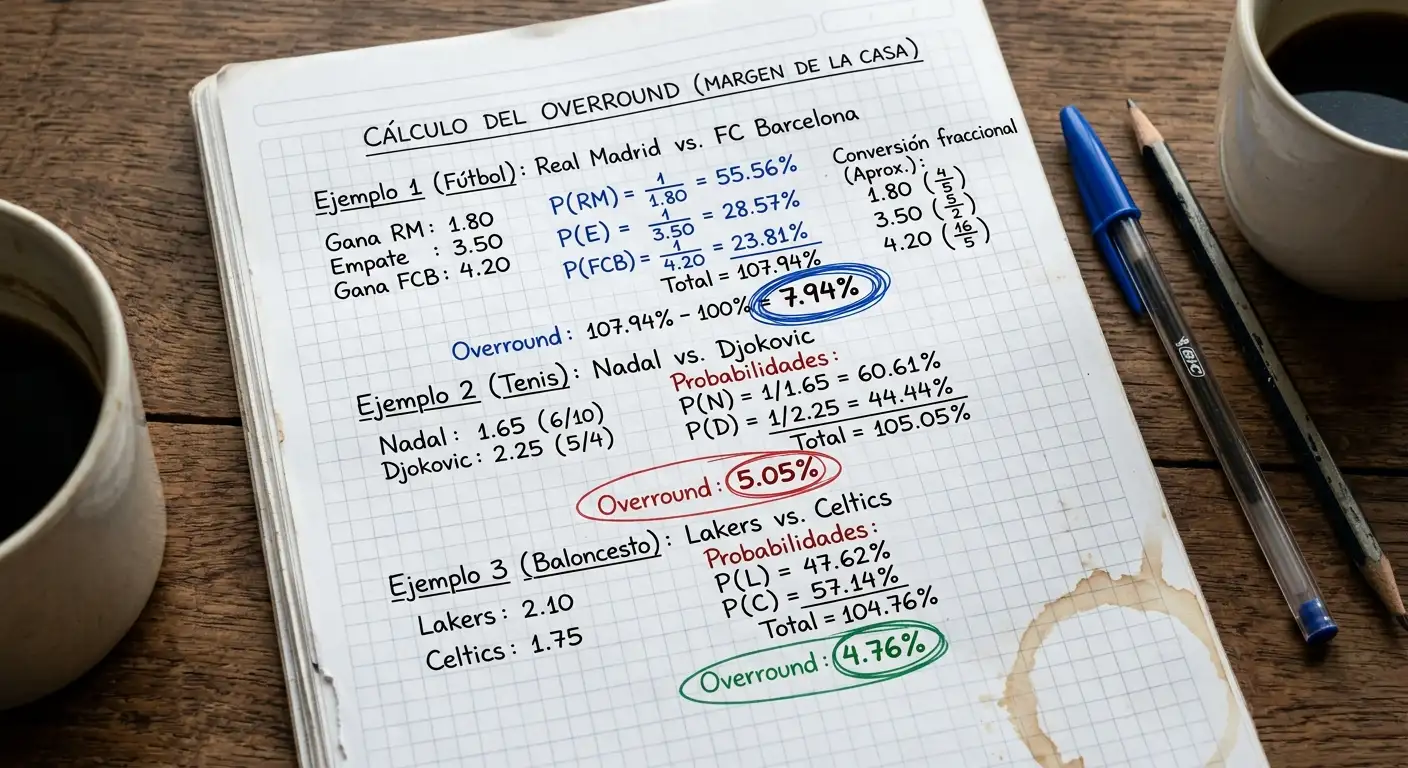 CÁLCULO DEL OVERROUND (MARGEN DE LA CASA)
Ejemplo 1 (Fútbol): Real Madrid vs. FC Barcelona
Gana RM: 1.80
Empate : 3.50
Gana FCB: 4.20
P(RM) = 1/1.80 = 55.56%
P(E) = 1/3.50 = 28.57%
P(FCB) = 1/4.20 = 23.81%
Total = 107.94%
Conversión fraccional
(Aprox.):
1.80 (4/5)
3.50 (5/2)
4.20 (16/5)
Overround: 107.94% - 100% = 7.94%
Ejemplo 2 (Tenis): Nadal vs. Djokovic
Nadal: 1.65 (6/10)
Djokovic: 2.25 (5/4)
Probabilidades:
P(N) = 1/1.65 = 60.61%
P(D) = 1/2.25 = 44.44%
Total = 105.05%
Overround: 5.05%
Ejemplo 3 (Baloncesto): Lakers vs. Celtics
Lakers: 2.10
Celtics: 1.75
Probabilidades:
P(L) = 47.62%
P(C) = 57.14%
Total = 104.76%
Overround: 4.76%
BIC